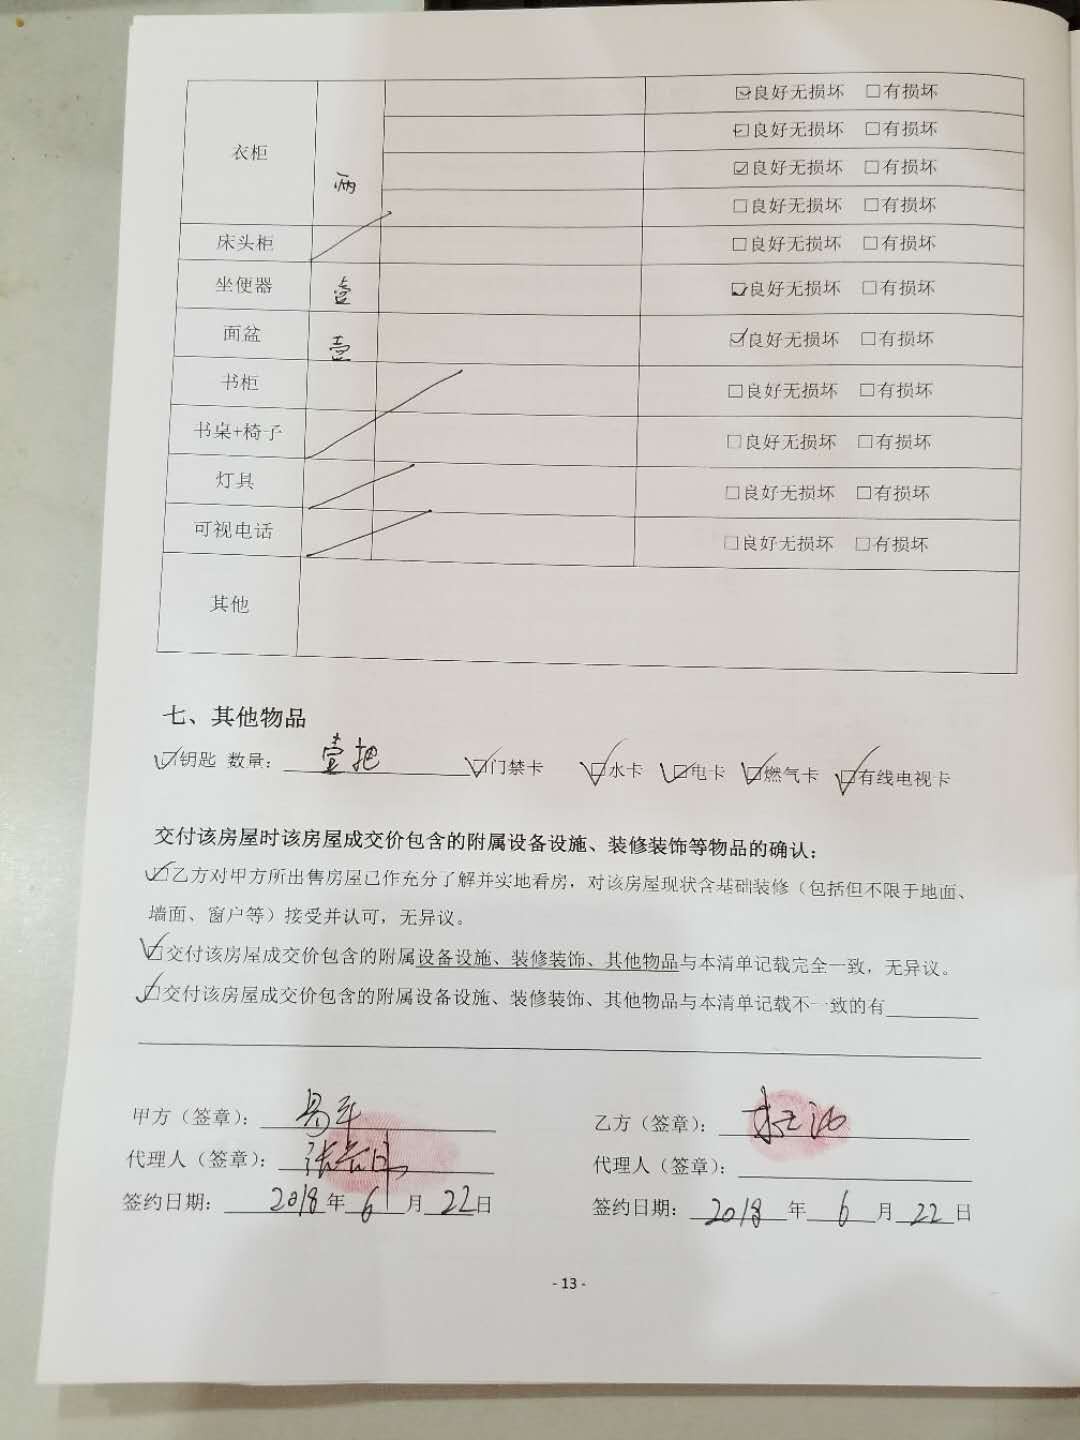 衣柜 两 ☑良好无损坏 □有损坏
☑良好无损坏 □有损坏
☑良好无损坏 □有损坏
□良好无损坏 □有损坏
床头柜 □良好无损坏 □有损坏
坐便器 壹 ☑良好无损坏 □有损坏
面盆 壹 ☑良好无损坏 □有损坏
书柜 □良好无损坏 □有损坏
书桌+椅子 □良好无损坏 □有损坏
灯具 □良好无损坏 □有损坏
可视电话 □良好无损坏 □有损坏
其他
七、其他物品
☑钥匙 数量：壹把 ☑门禁卡 ☑水卡 ☑电卡 ☑燃气卡 ☑有线电视卡
交付该房屋时该房屋成交价包含的附属设备设施、装修装饰等物品的确认：
☑乙方对甲方所出售房屋已作充分了解并实地看房，对该房屋现状含基础装修（包括但不限于地面、
墙面、窗户等）接受并认可，无异议。
☑交付该房屋成交价包含的附属设备设施、装修装饰、其他物品与本清单记载完全一致，无异议。
☑交付该房屋成交价包含的附属设备设施、装修装饰、其他物品与本清单记载不一致的有
甲方（签章）： 乙方（签章）：
代理人（签章）： 代理人（签章）：
签约日期：2018年6月22日 签约日期：2018年6月22日
- 13 -